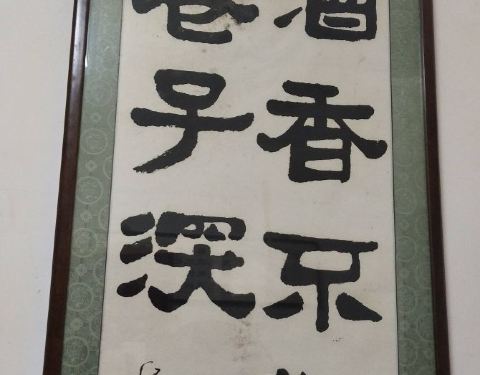 酒香不
巷子深